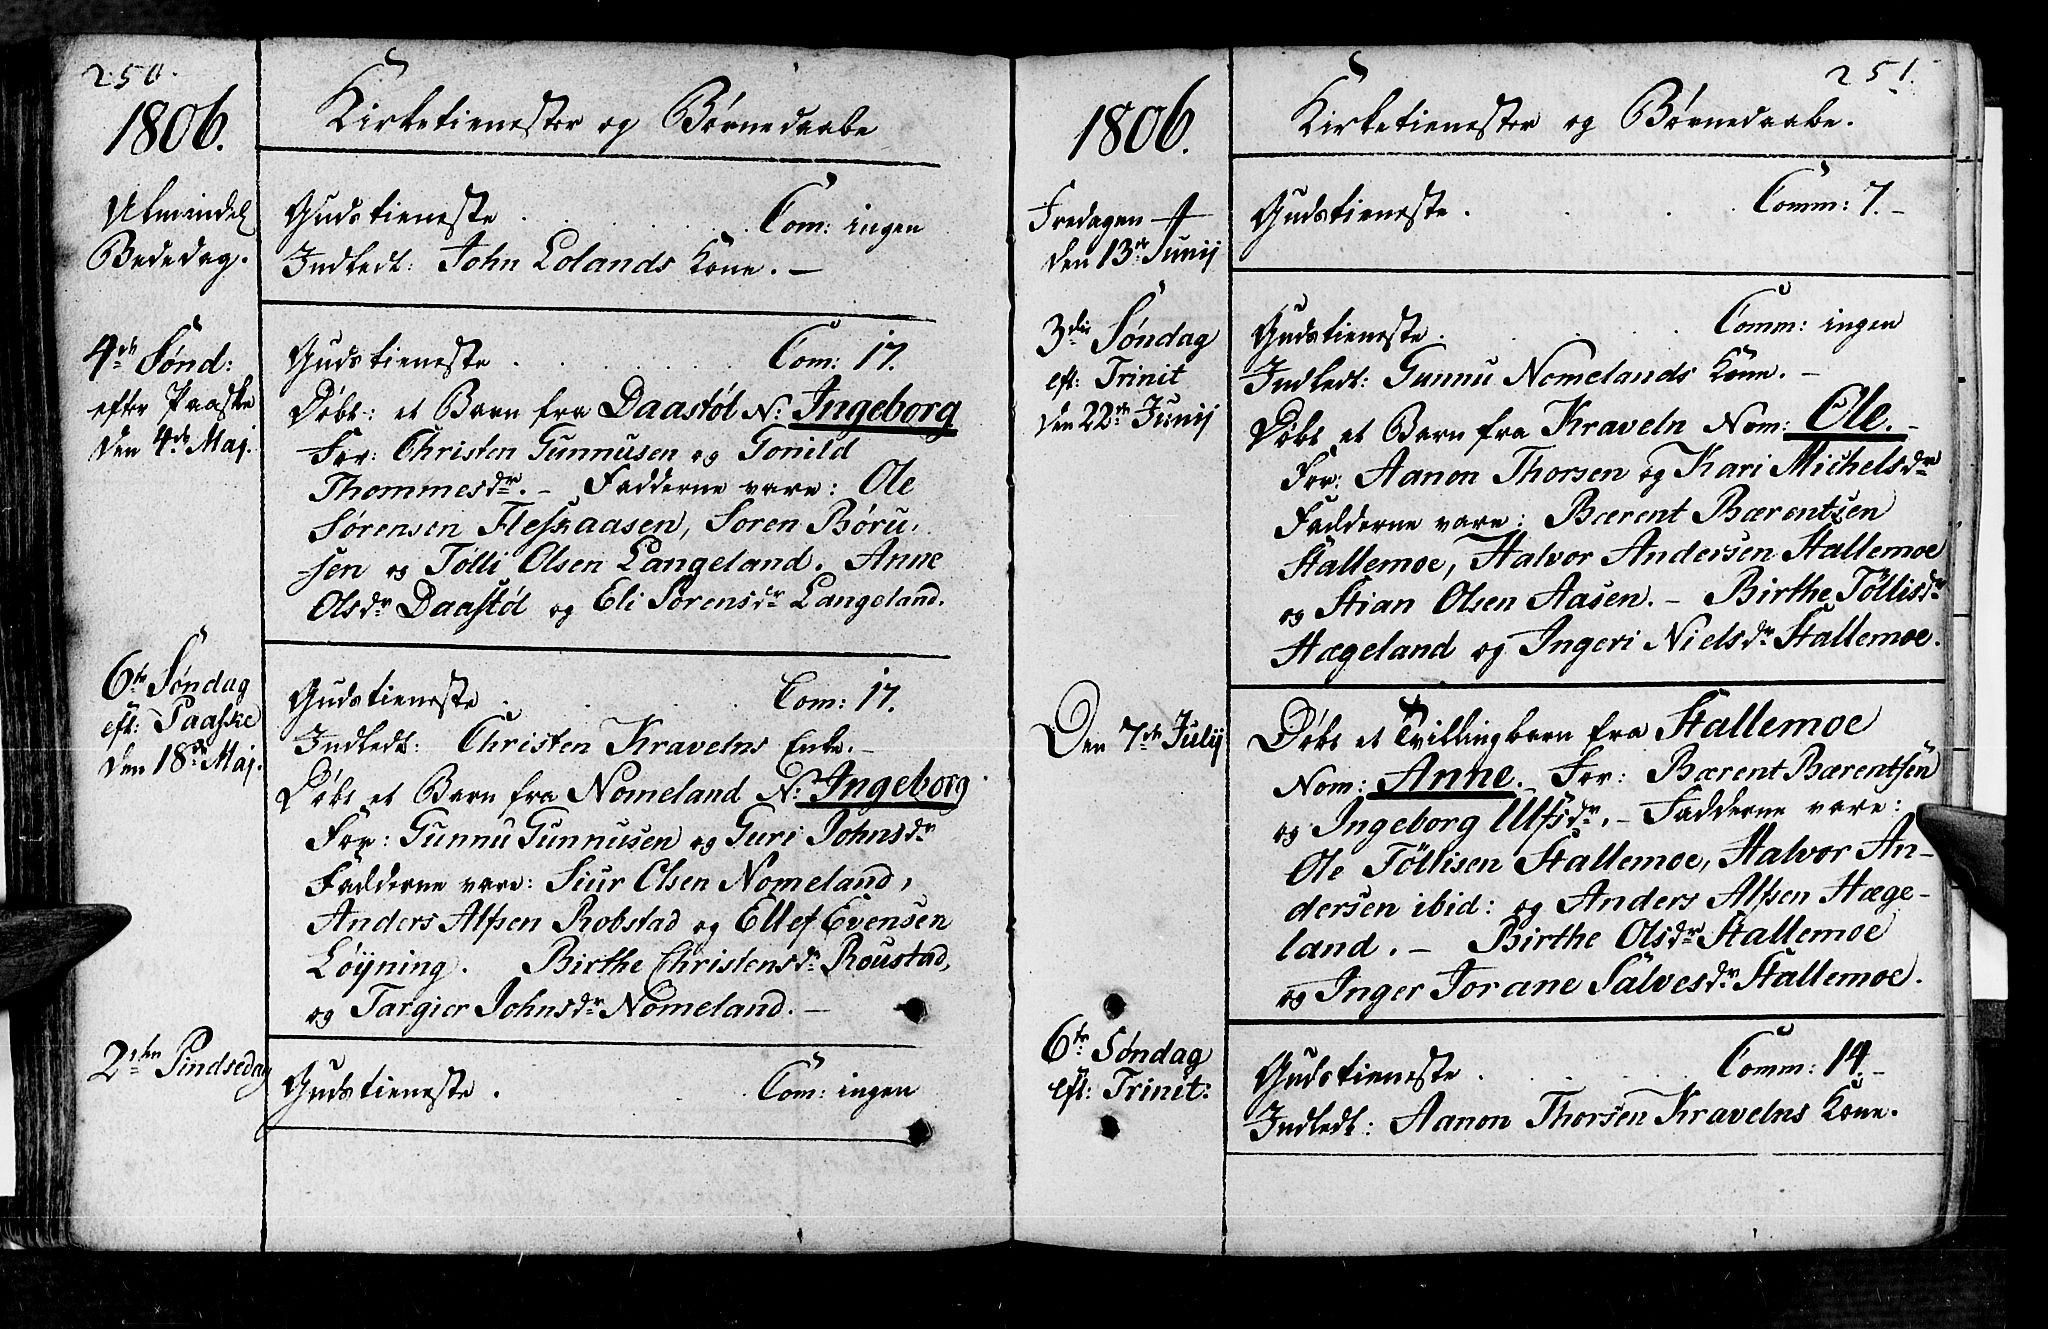 250.
1806.
Kirketienester og Børnedaabe
Almindel
Bededag.
Gudstieneste . . . . Com: ingen
Indledt: John Lolands Kone. –
4de Sønd:
efter Paaske
den 4de Maj.
Gudstieneste . . . . Com: 17.
Døbt: et Barn fra Daastøl N: Ingeborg
For: Christen Gunnusen og Gonild
Thommesdr. – Fadderne vare: Ole
Sørensen Fleskaasen, Soren Böru,
-sen og Tölli Olsen Langeland. Anne
Olsdr Daastöl og Eli Sørensdr Langeland.
6te Søndag
eft: Paaske
den 18de Maj.
Gudstieneste . . . . Com: 17.
Indledt: Christen Kravelns Enke. –
Døbt et Barn fra Nomeland N: Ingeborg
For: Gunnu Gunnusen og Guri Johnsdr
Fadderne vare: Siur Olsen Nomeland,
Anders Alfsen Robstad og Ellef Evensen
Löyning. Birthe Christensdr Roustad,
og Targier Johnsdr Nomeland. –
2den Pindsedag
Gudstieneste . . . . Com: ingen
251.
1806.
Kirketienester og Børnedaabe.
Fredagen
den 13de Junij
Gudstieneste . . . . Comm: 7. –
3die Søndag
eft: Trinit
den 22de Junij
Gudstieneste . . . . Comm: ingen
Indledt: Gunnu Nomelands Kone. –
Døbt et Barn fra Kraveln Nom: Ole. –
For: Aanon Thorsen og Kari Michelsdr
Fadderne vare: Bærent Bærentsen
Stallemoe, Halvor Andersen Stallemoe
og Stian Olsen Aasen. – Birthe Töllisdr
Hægeland og Ingeri Nielsdr Stallemoe.
Den 7de Julij
Døbt et Tvillingbarn fra Stallemoe
Nom: Anne. For: Bærent Bærentsen
og Ingeborg Ulfsdr. – Fadderne vare:
Ole Töllisen Stallemoe, Halvor An-
dersen ibid: og Anders Alfsen Hæge-
land. – Birthe Olsdr Stallemoe
og Inger Jorane Salvesdr Stallemoe.
6te Søndag
eft: Trinit:
Gudstieneste . . . . Comm: 14. –
Indledt: Aanon Thorsen Kravelns Kone.